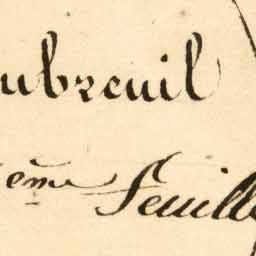 ubreuil
ème feuille